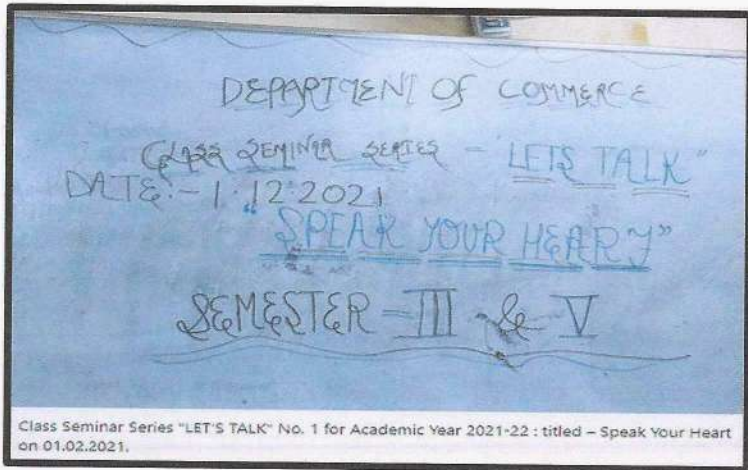 DEPARTMENT OF COMMERCE
CLASS SEMINAR SERIES - LETS TALK"
DATE:- 1.12.2021
"SPEAK YOUR HEART"
SEMESTER - III & V
Class Seminar Series "LET'S TALK" No. 1 for Academic Year 2021-22 : titled – Speak Your Heart
on 01.02.2021.